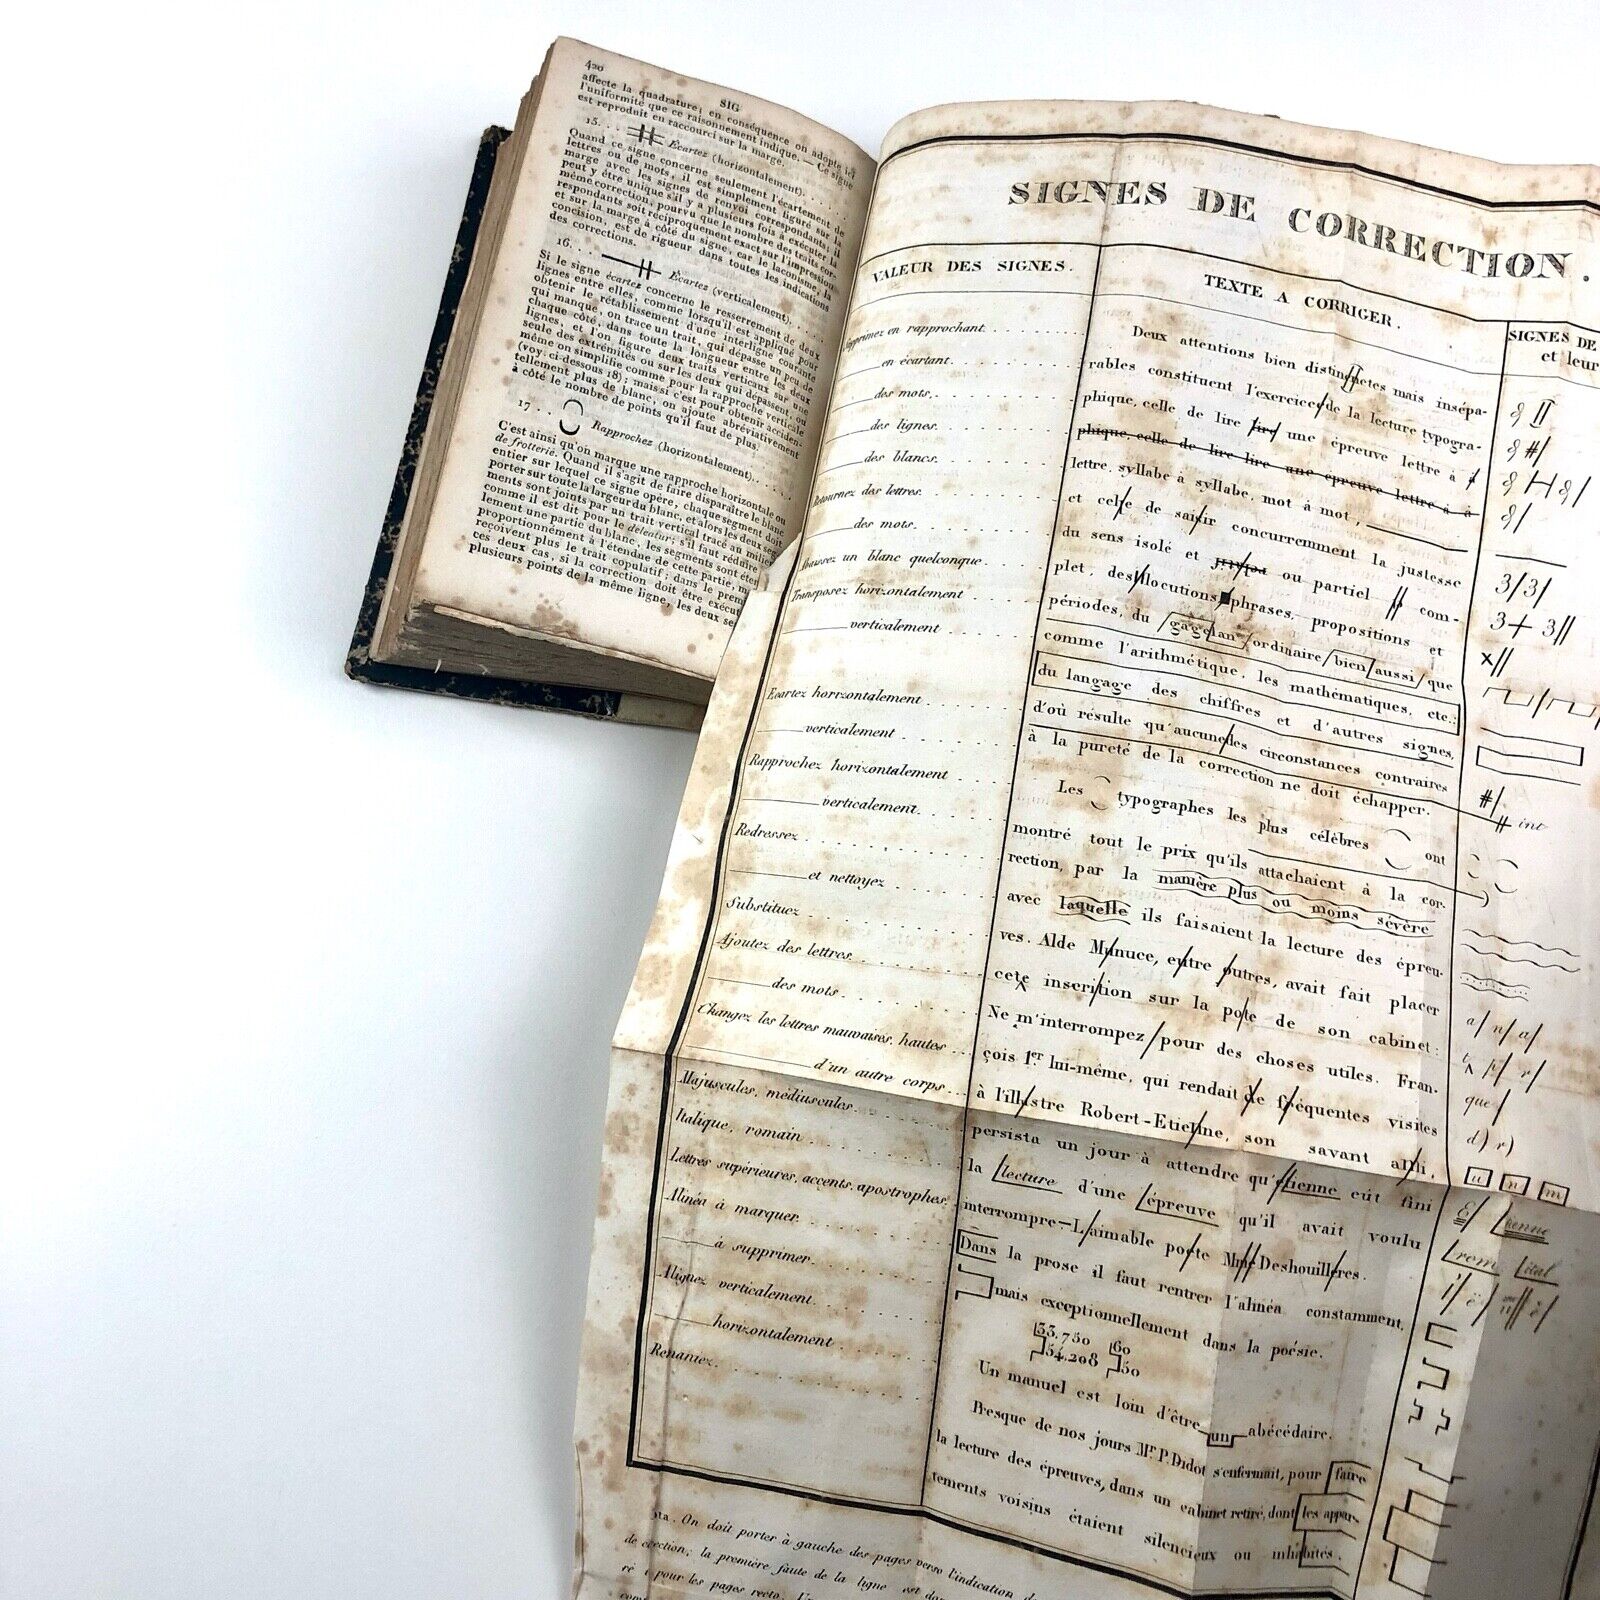 420
SIG
affecte la quadrature; en conséquence on adopte ici
l'uniformité que ce raisonnement indique. — Ce signe
est reproduit en raccourci sur la marge.
15. . . Écartez (horizontalement). . . . . .
Quand ce signe concerne seulement l'écartement de
lettres ou de mots, il est simplement figuré sur la
marge avec les signes de renvoi correspondants; il
peut y être unique s'il y a plusieurs fois à exécuter la
même correction, pourvu que le nombre des traits cor-
respondants soit réciproquement exact sur l'impression
et sur la marge à côté du signe, car le laconisme, la
concision, est de rigueur dans toutes les indications
des corrections.
16. . . Écartez (verticalement). . . . .
Si le signe écartez concerne le resserrement de deux
lignes entre elles, comme lorsqu'il est appliqué pour
obtenir le rétablissement d'une interligne courante
qui manque, on trace un trait, qui dépasse un peu de
chaque côté, dans toute la longueur entre les deux
lignes, et l'on figure deux traits verticaux sur une
seule des extrémités ou sur les deux qui dépassent, ou
même on simplifie comme pour la rapproche verticale
(voy. ci-dessous 18); mais si c'est pour obtenir acciden-
tellement plus de blanc, on ajoute abréviativement
à côté le nombre de points qu'il faut de plus.
17 . . Rapprochez (horizontalement). . . . . .
C'est ainsi qu'on marque une rapproche horizontale ou
de frotterie. Quand il s'agit de faire disparaître le blanc
entier sur lequel ce signe opère, chaque segment doit
porter sur toute la largeur du blanc, et alors les deux seg-
ments sont joints par un trait vertical tracé au milieu
comme il est dit pour le deleatur; s'il faut réduire
proportionnément à l'étendue de cette partie,
lement une partie du blanc, les segments sont
reçoivent plus le trait copulatif; dans le
ces deux cas, si la correction doit être
plusieurs points de la même ligne, les deux
SIGNES DE CORRECTION.
VALEUR DES SIGNES.
Supprimez en rapprochant. . . . . . . . .
en écartant. . . . . . . . .
des mots. . . . . . . . .
des lignes. . . . . . . . .
des blancs. . . . . . . . .
Retournez des lettres. . . . . . . . .
des mots. . . . . . . . .
Abaissez un blanc quelconque. . . . .
Transposez horizontalement . . . . . .
verticalement . . . . . .
Écartez horizontalement . . . . . . .
verticalement . . . . . . .
Rapprochez horizontalement . . . . .
verticalement. . . . . . .
Redressez . . . . . . . . .
et nettoyez . . . . . . .
Substituez . . . . . . . . .
Ajoutez des lettres. . . . . . . . .
des mots. . . . . . . . .
Changez les lettres mauvaises, hautes . .
d'un autre corps. . . .
Majuscules, médiuscules. . . . . . .
Italique, romain . . . . . . . . .
Lettres supérieures, accents, apostrophes.
Alinéa à marquer. . . . . . . . .
à supprimer. . . . . . . . .
Alignez verticalement. . . . . . . . .
horizontalement . . . . . . .
Remaniez. . . . . . . . .
TEXTE A CORRIGER.
Deux attentions bien distinctetes mais insépa-
rables constituent l'exercices de la lecture typogra-
phique, celle de lire lire une épreuve lettre à
phique, celle de lire lire une épreuve lettre à à
lettre, syllabe à syllabe, mot à mot,
et celle de saisir concurremment la justesse
du sens isolé et relatif ou partiel com-
plet, des locutions phrases, propositions et
périodes, du gagelan ordinaire bien aussi que
comme l'arithmétique, les mathématiques, etc.;
du langage des chiffres et d'autres signes,
d'où résulte qu'aucunedes circonstances contraires
à la pureté de la correction ne doit échapper.
Les typographes les plus célèbres ont
montré tout le prix qu'ils attachaient à la cor-
rection, par la manière plus ou moins sévère
avec laquelle ils faisaient la lecture des épreu-
ves. Alde Mnnuce, eutre outres, avait fait placer
cete inserition sur la pote de son cabinet:
Ne m'interrompez pour des choses utiles. Fran-
çois 1er lui-même, qui rendait de fréquentes visites
à l'illustre Robert-Etienne, son savant ami,
persista un jour à attendre qu'etienne eût fini
la lecture d'une épreuve qu'il avait voulu
interrompre—Laimable poete Mme Deshouillères.
Dans la prose il faut rentrer l'alinéa constamment,
mais exceptionnellement dans la poésie.
33,750 60
54,208 50
Un manuel est loin d'être un abécédaire.
Presque de nos jours Mr P. Didot s'enfermait, pour faire
la lecture des épreuves, dans un cabinet retiré, dont les appar-
tements voisins étaient silencieux ou inhabités.
SIGNES DE
et leur
3/3/
3+ 3//
x//
#/
int
a/ n/ a/
t p/ r/
que/
d) r)
u n m
E/ tienne
rom ital
l'/ ë/ è/
On doit porter à gauche des pages verso l'indication
la première faute de la ligne est
pour les pages recto.